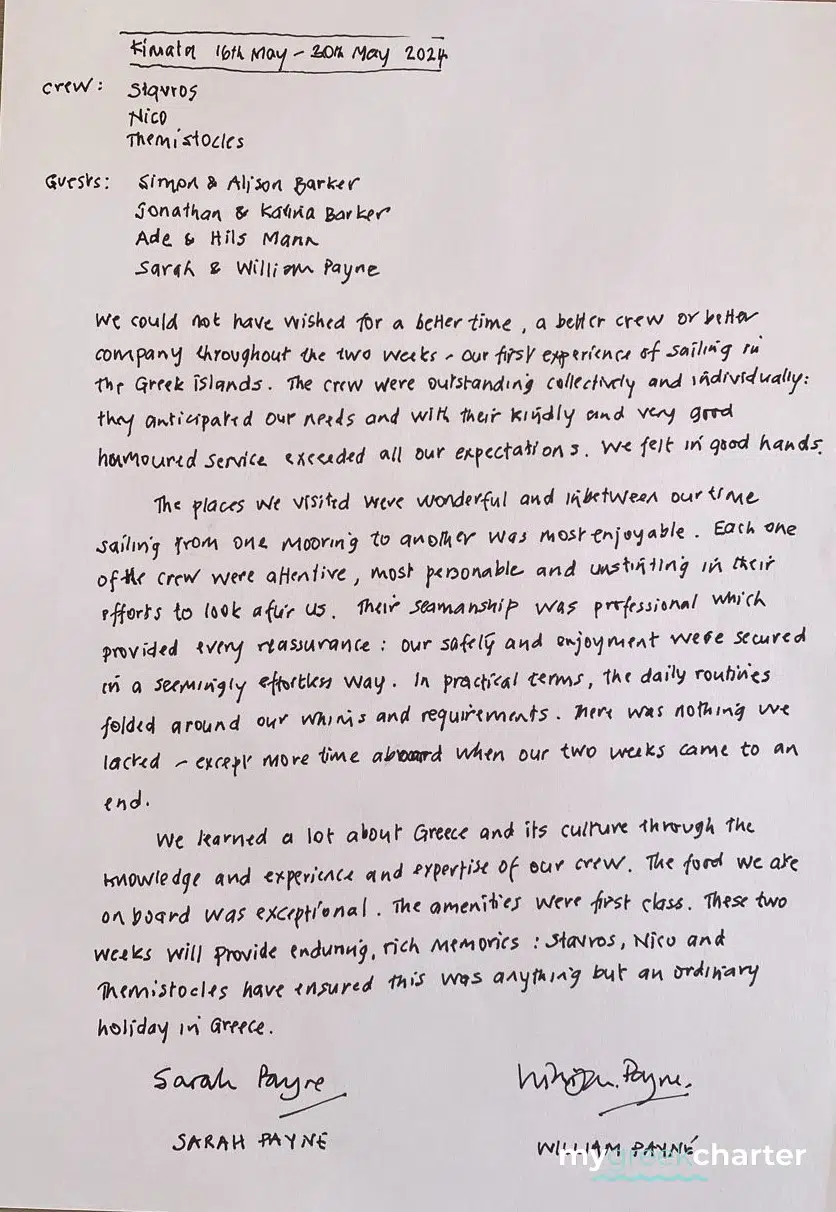 Kimata 16th May – 30th May 2024
Crew: Stavros
Nico
Themistocles
Guests: Simon & Alison Barker
Jonathan & Karina Barker
Ade & Hils Mann
Sarah & William Payne
We could not have wished for a better time, a better crew or better
company throughout the two weeks – our first experience of sailing in
the Greek islands. The crew were outstanding collectively and individually:
they anticipated our needs and with their kindly and very good
humoured service exceeded all our expectations. We felt in good hands.
The places we visited were wonderful and inbetween our time
sailing from one mooring to another was most enjoyable. Each one
of the crew were attentive, most personable and unstinting in their
efforts to look after us. Their seamanship was professional which
provided every reassurance: our safety and enjoyment were secured
in a seemingly effortless way. In practical terms, the daily routines
folded around our whims and requirements. There was nothing we
lacked – except more time aboard when our two weeks came to an
end.
We learned a lot about Greece and its culture through the
knowledge and experience and expertise of our crew. The food we ate
on board was exceptional. The amenities were first class. These two
weeks will provide enduring, rich memories: Stavros, Nico and
Themistocles have ensured this was anything but an ordinary
holiday in Greece.
Sarah Payne William Payne.
SARAH PAYNE WILLIAM PAYNE
mygreekcharter